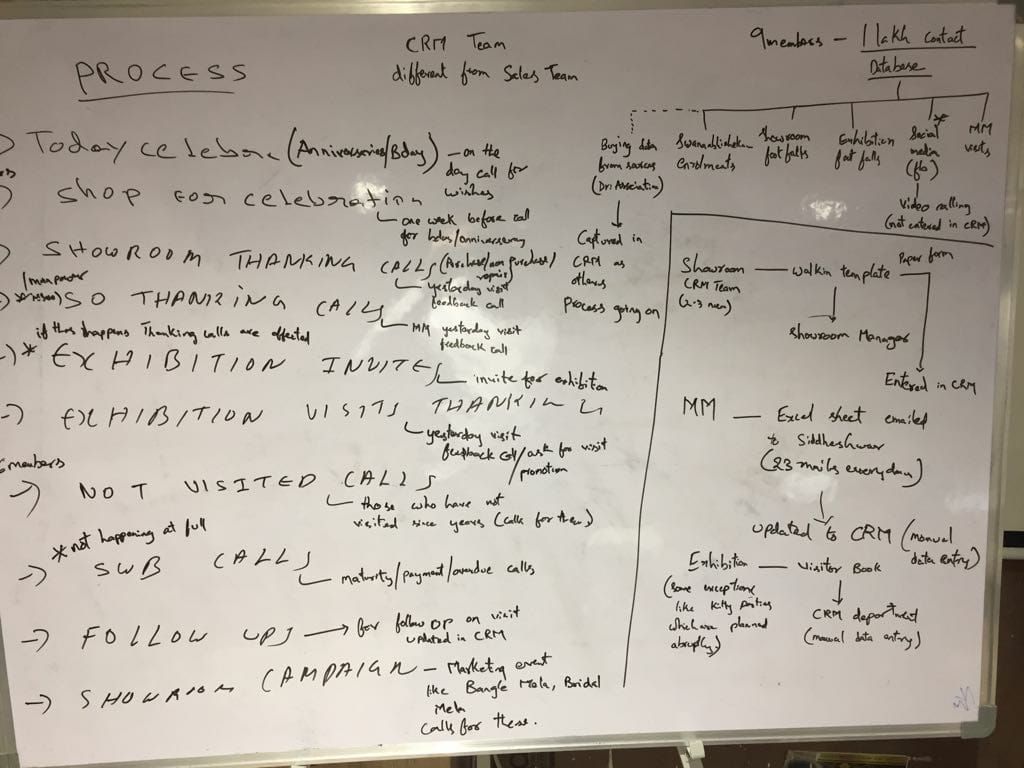 PROCESS
CRM Team
different from Sales Team
9 members - 1 lakh contact
Database
Today celebra (Anniversaries/Bday) - on the
day call for
wishes
Shop for celebration
one week before call
for bdays/anniversary
SHOWROOM THANKING CALLS (Purchase/non purchase/
repair)
yesterday visit
feedback call
/manpower
SO THANKING CALLS
MM yesterday visit
feedback call
if this happens Thanking calls are affected
* EXHIBITION INVITES
invite for exhibition
EXHIBITION VISITS THANKING
yesterday visit
feedback call/ask for visit
promotion
members
NOT VISITED CALLS
those who have not
visited since years (calls for them)
*not happening at full
SWB CALLS
maturity/payment/overdue calls
FOLLOW UPS → for follow up on visit
updated in CRM
SHOWROOM CAMPAIGN - Marketing event
like Bangle Mela, Bridal
Mela
calls for these.
Buying data
from sources
(Dr. Association)
Captured in
CRM as
others
Process going on
enrolments
Showroom
foot falls
Exhibition
foot falls
Social
media
(fb)
*
Video calling
(not entered in CRM)
MM
visits
Showroom
CRM Team
(2-3 men)
walkin template
Paper form
Showroom Manager
Entered in CRM
MM - Excel sheet emailed
to Siddheshwar
(23 mails everyday)
updated to CRM (manual
data entry)
Exhibition - Visitor Book
(some exceptions
like kitty parties
which are planned
abruptly)
CRM department
(manual data entry)